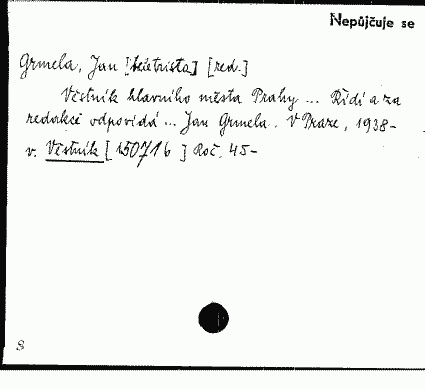 Nepůjčuje se
Grmela, Jan [beletrista] [red.]
Věstník hlavního města Prahy ... Řídí a za
redakci odpovídá ... Jan Grmela. V Praze, 1938-
v. Věstník [150716] Roč. 45-
S